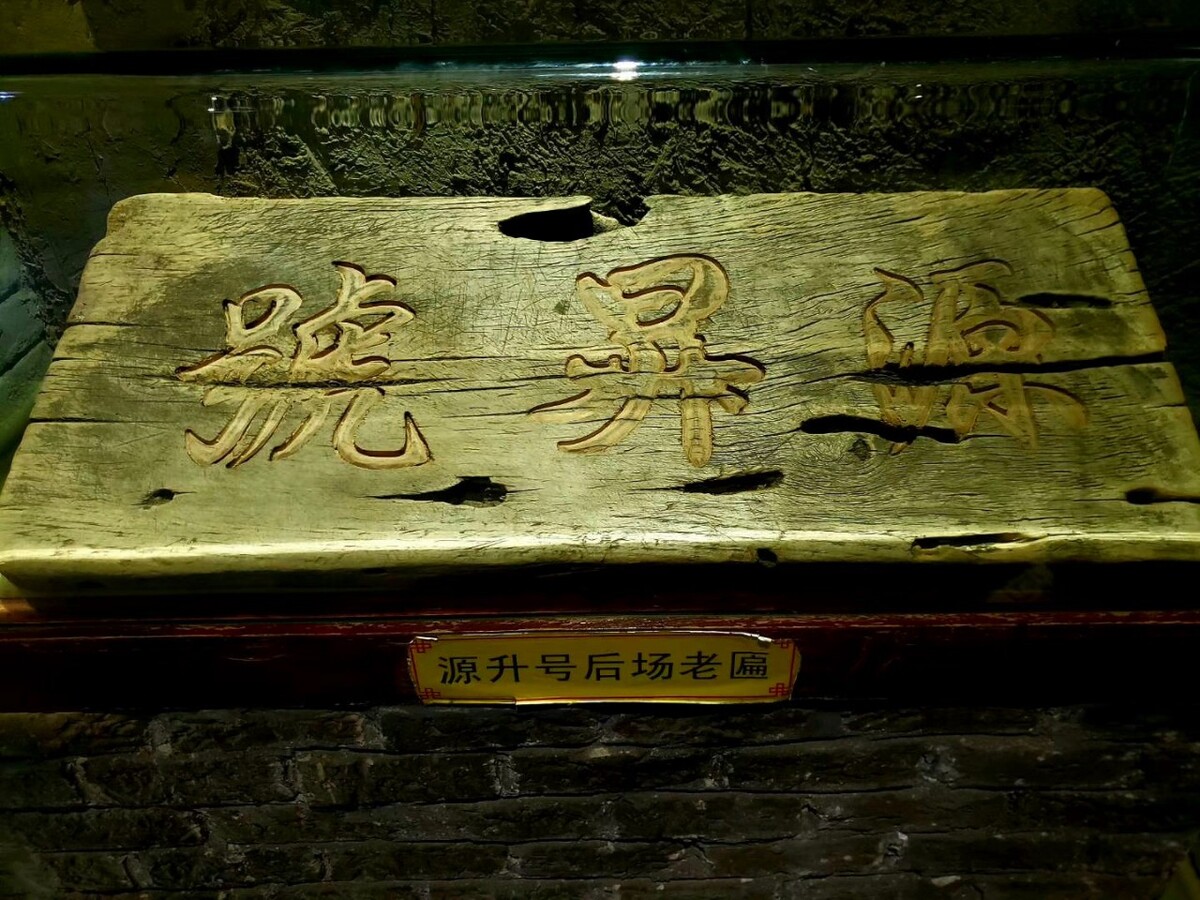 源昇號
源升号后场老匾